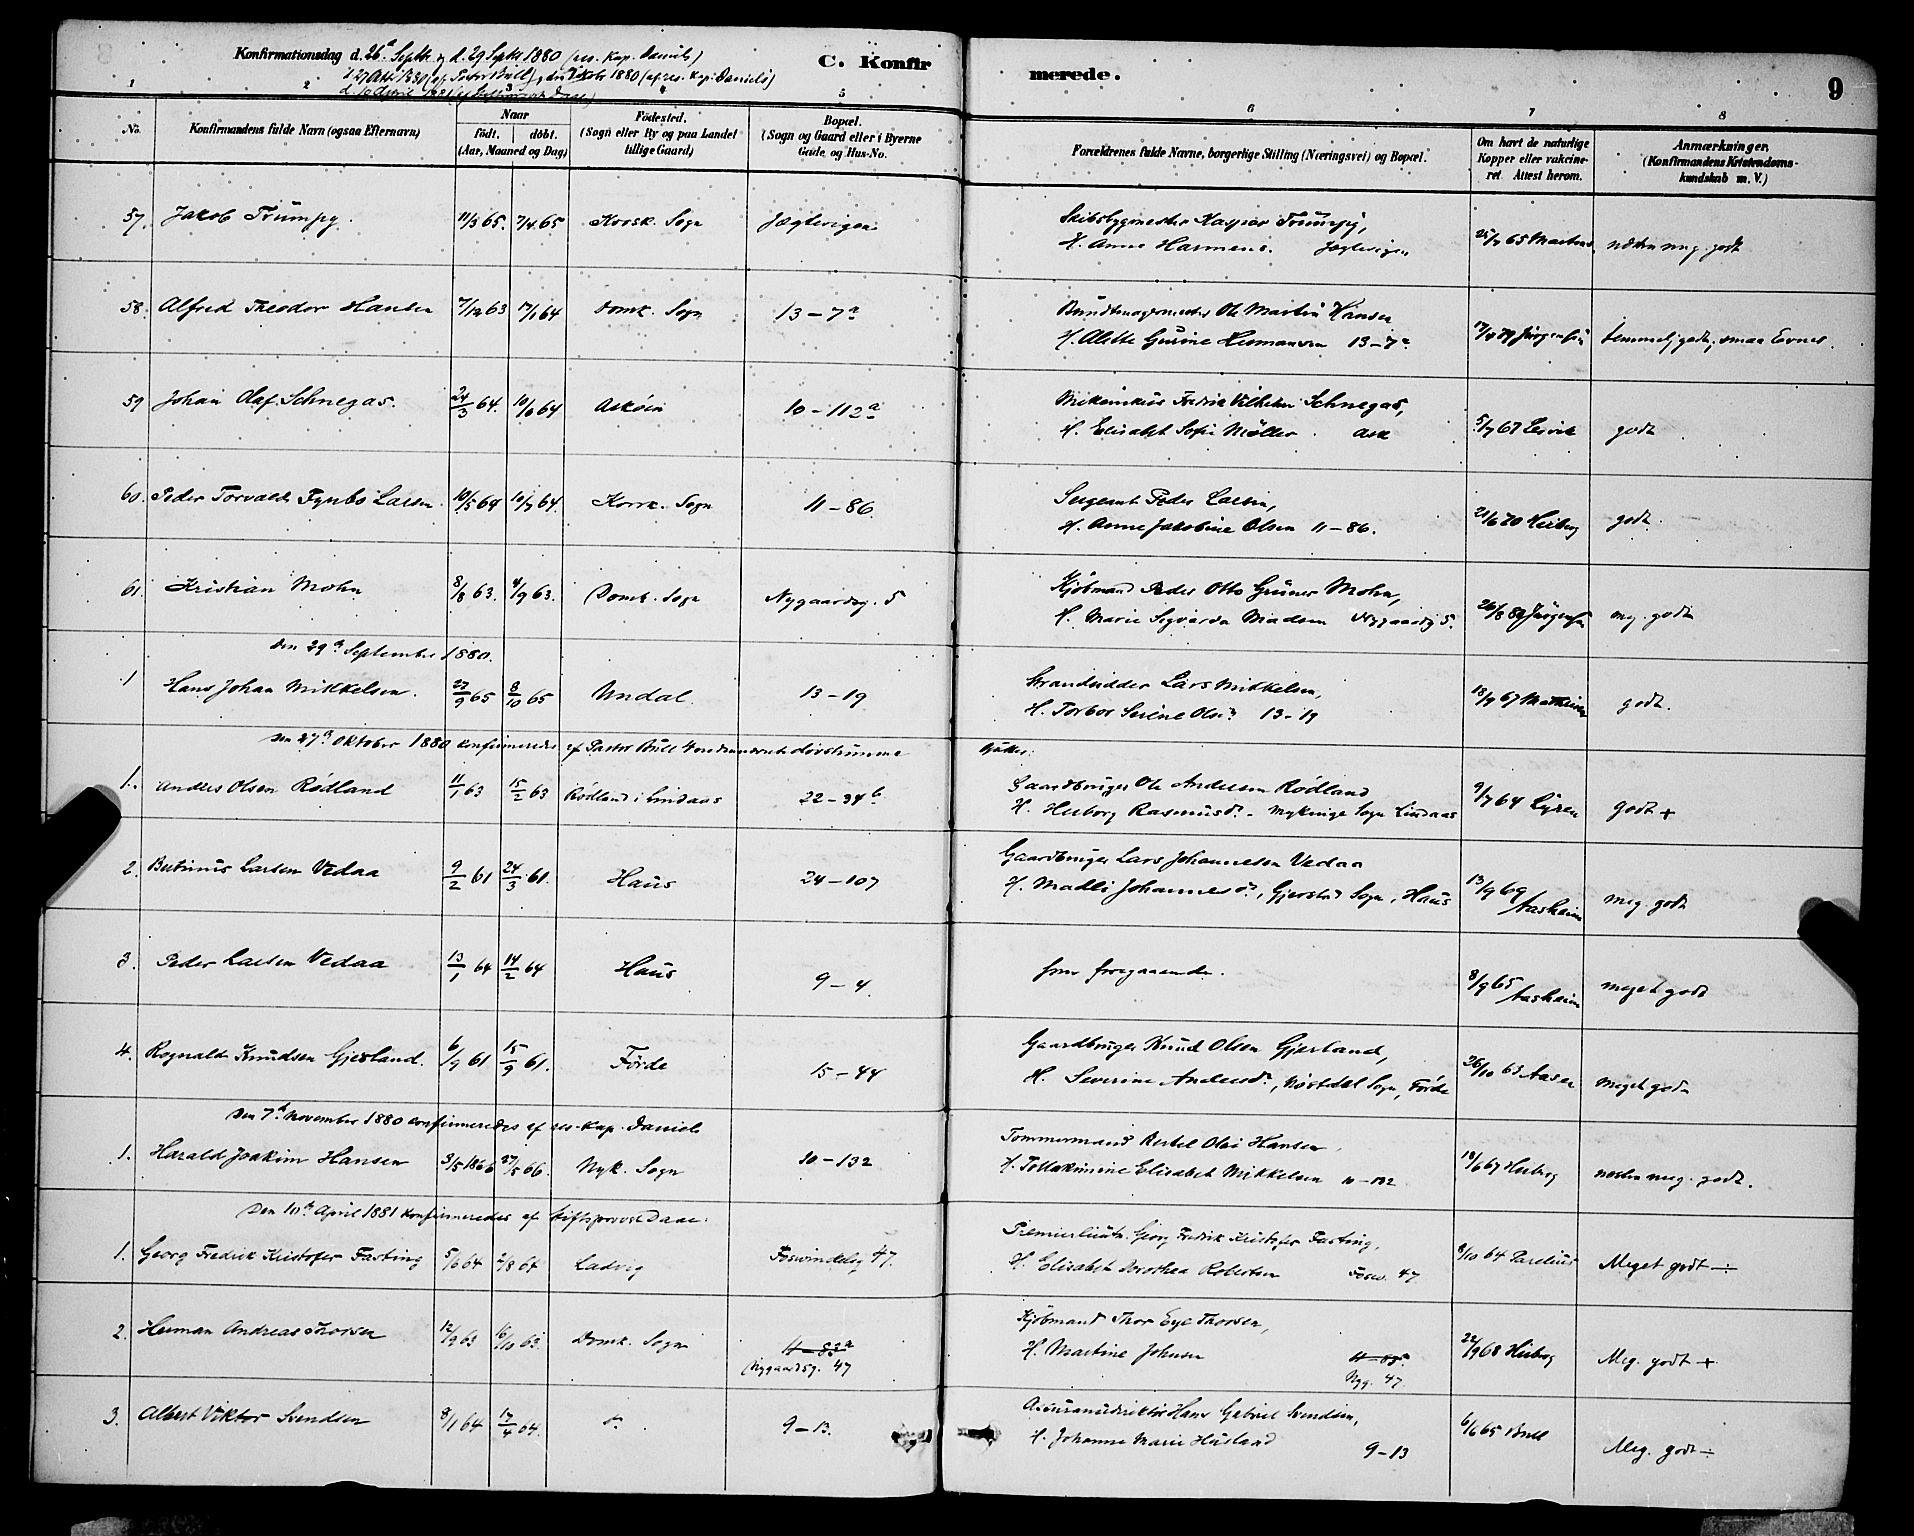 Konfirmationsdag d. 26de Septbr. og d. 29 Septbr 1880 (res. Kap. Daniels)
C. Konfirmerede.
9
1 2 3 4 5 6 7 8
No.
Konfirmandens fulde Navn (ogsaa Efternavn)
Naar
födt. döbt.
(Aar, Maaned og Dag)
Födested.
(Sogn eller By og paa Landet
tillige Gaard)
Bopæl.
(Sogn og Gaard eller i Byerne
Gade og Hus-No.
Forældrenes fulde Navne, borgerlige Stilling (Næringsvei) og Bopæl.
Om havt de naturlige
Kopper eller vakcineret. Attest herom.
Anmærkninger,
(Konfirmandens Kristendoms-
kundskab m. V.)
57. Jakob Trumpy. 11/3 65. 7/4 65 Korsk. Sogn Jægtevigen
Skibsbygmester Kaspar Trumpy,
H. Anne Harmens. Jægtevigen
25/7 65 Martens. næsten meg. godt
58. Alfred Theodor Hansen 7/12 63 17/1 64 Domk. Sogn 13-7a
Bundtmagermester Ole Martin Hansen
H. Alette Gurine Hermansen 13-7a
Jørgensen temmelig godt, smaa Evner.
59 Johan Olaf Schnegas. 24/3 64. 10/6 64 Askøen 10-112a
Mekanikus Fredrik Vilhelm Schnegas,
H. Elisabet Sofie Møller. Ask
5/7 67 Lervik godt
60. Peder Torvald Fynbo Larsen. 10/5 64 10/7 64. Korsk. Sogn 11-86.
Sergeant Peder Larsen,
H. Anne Jakobine Olsen 11-86.
21/6 70 Heiberg godt.
61. Kristian Mohn 8/8 63. 4/9 63. Domk. Sogn Nygaardsg. 5
Kjøbmand Peder Otto Grüner Mohn,
H. Marie Sigvarda Madsen Nygaardsg 5.
26/8 80 Jørgensen meg. godt
Den 29de September 1880.
1 Hans Johan Mikkelsen. 27/9 65 8/10 65 Undal. 13-19
Strandsidder Lars Mikkelsen,
H. Torbor Serine Olsdr 13-19
18/9 67 godt.
Den 27de Oktober 1880 konfirmeredes af Pastor Bull døvstumme
1. Anders Olsen Rødland 11/1 63 15/2 63 Rødland i Lindaas 22-34b
Gaardbruger Ole Andersen Rødland
H. Herborg Rasmusdr. Mykinge Sogn Lindaas
9/7 64 Lyren godt +
2. Bertinius Larsen Vedaa 9/2 61 24/3 61. Haus 24-107
Gaardbruger Lars Johannesen Vedaa
H. Madli Johannesdr, Gjerstad Sogn, Haus
13/9 69 Aasheim meg. godt
3. Peder Larsen Vedaa 13/1 64 14/2 64 Haus 9-4.
som foregaaende.
8/9 65 Aasheim meget godt
4. Rognald Knudsen Gjerland. 6/9 61 15/9 61. Førde 15-44
Gaardbruger Knud Olsen Gjerland,
H. Severine Andersdr, Nøstdal Sogn, Førde
26/10 63 Aasen meget godt
Den 7de November 1880 konfirmeredes af res. Kap. Daniels
1. Harald Joakim Hansen 3/5 1866 27/5 66. Nyk. Sogn 10-132
Tømmermand Kertel Olai Hansen,
H. Elisabet Mikkelsen 10-132
18/6 67 Heiberg næsten meg. godt.
Den 10de April 1881 konfirmeredes af Stiftsprovst Daae.
1. Georg Fredrik Kristofer Fasting 5/6 64 2/8 64 Ladvig Fosvindelsg 47.
Premierlieutn. Georg Fredrik Kristofer Fasting,
H. Elisabet Dorothea Robertson Fosv. 47
8/10 64 Parelius Meget godt ÷
2. Herman Andreas Thorsen 12/9 63 16/10 63. Domk. Sogn 4-83a
Nygaardsg. 47
Kjøbmand Thor Eye Thorsen,
H. Martine Johnsen 4-83a
Nyg. 47.
22/9 68 Heiberg Meg. godt +
3. Albert Viktor Svendsen 8/1 64 17/4 64. do 9-13.
Assurancedirektør Hans Gabriel Svendsen,
H. Johanne Marie Husland 9-13
6/6 65 Bull Meg. godt ÷